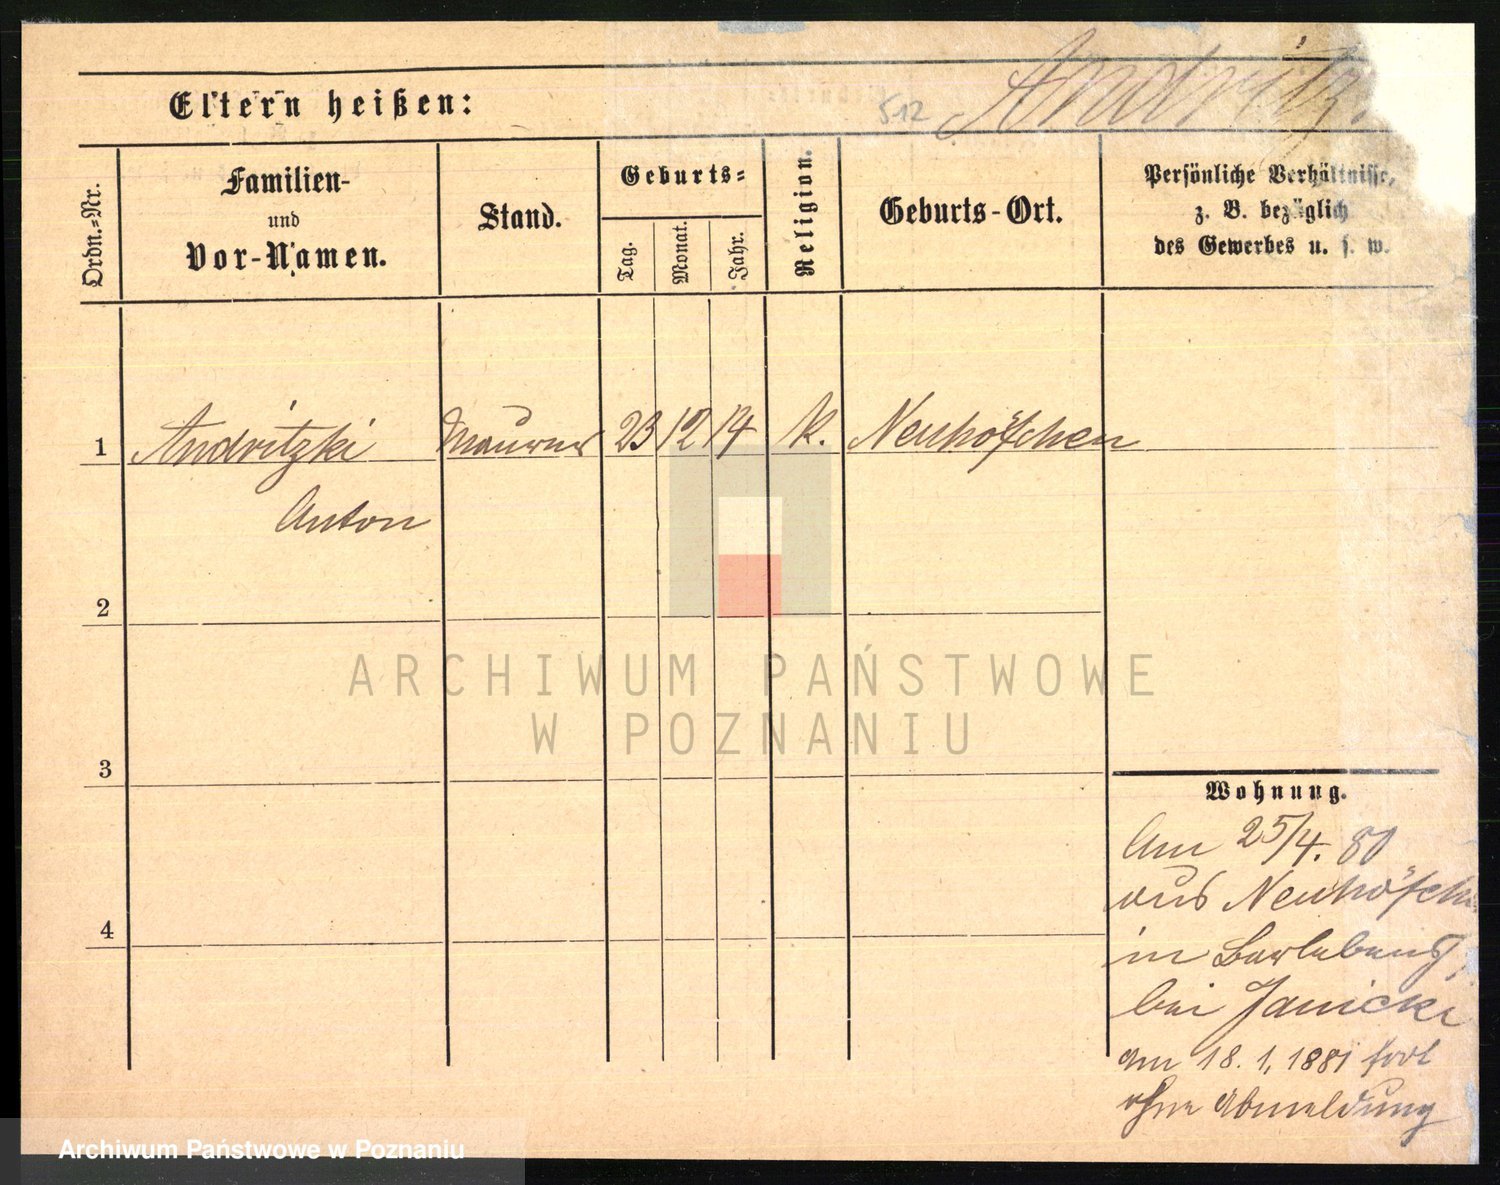 Eltern heißen:
512
Andritz
Ordn.-Nr.
Familien-
und
Vor-Namen.
Stand.
Geburts-
Tag.
Monat.
Jahr.
Religion.
Geburts-Ort.
Persönliche Verhältnisse,
z. B. bezüglich
des Gewerbes u. s. w.
1 Andritzki Maurer 23 12 14 k. Neuhöfchen
Anton
2
ARCHIWUM PAŃSTWOWE
W POZNANIU
3
Wohnung.
Am 25/4. 80
aus Neuhöfch
in Bartelsees
bei Janicki
am 18. 1. 1881 fort
ohne Abmeldung
4
Archiwum Państwowe w Poznaniu